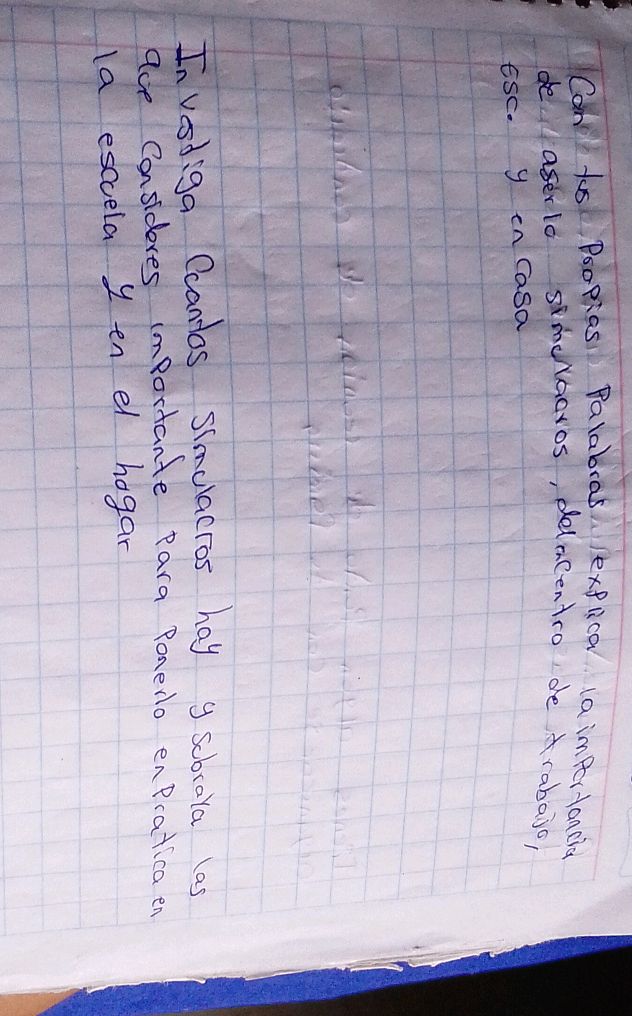 Con tus Propias Palabras explica la importancia
de aserlo simulacros, del centro de trabajo,
Esc. y en casa
Investiga Cuantos Simulacros hay y Subraya las
que Consideres importante Para Ponerlo en Pratica en
la escuela y en el hogar